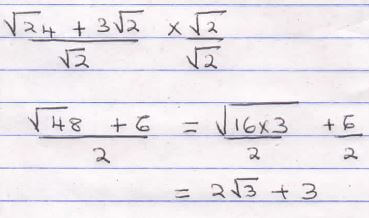 (√24 + 3√2)/√2 × √2/√2
(√48 + 6)/2 = √(16×3)/2 + 6/2
= 2√3 + 3